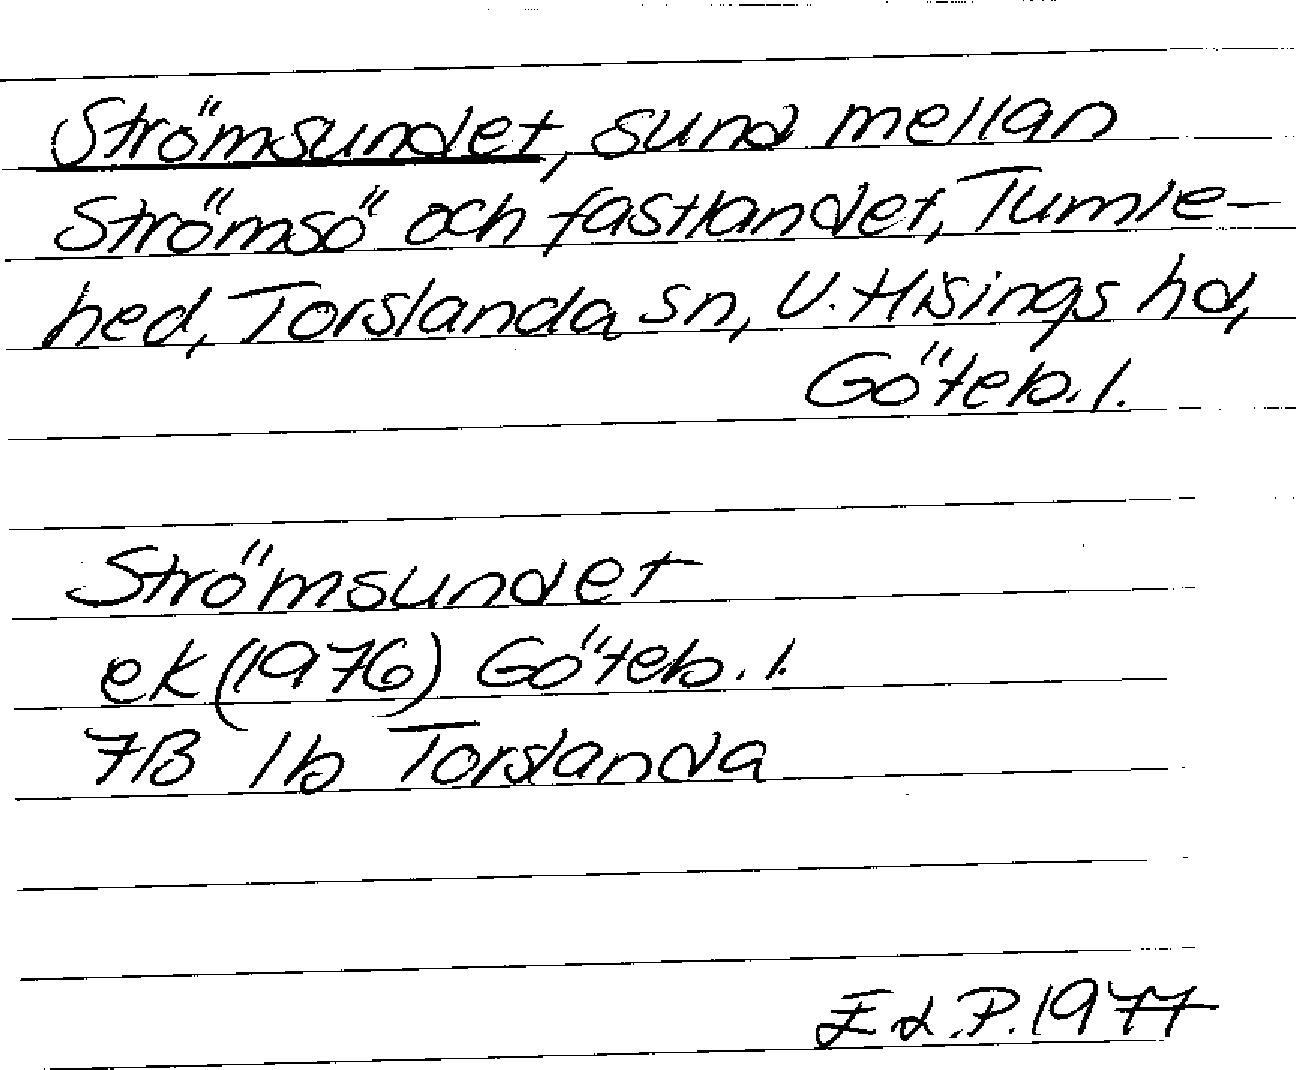 Strömsundet, sund mellan
Strömsö och fastlandet, Tumle-
hed, Torslanda sn, V. Hisings hd,
Göteb. l.
Strömsundet
ek (1976) Göteb. l.
7B 1b Torslanda
E d. P. 1977